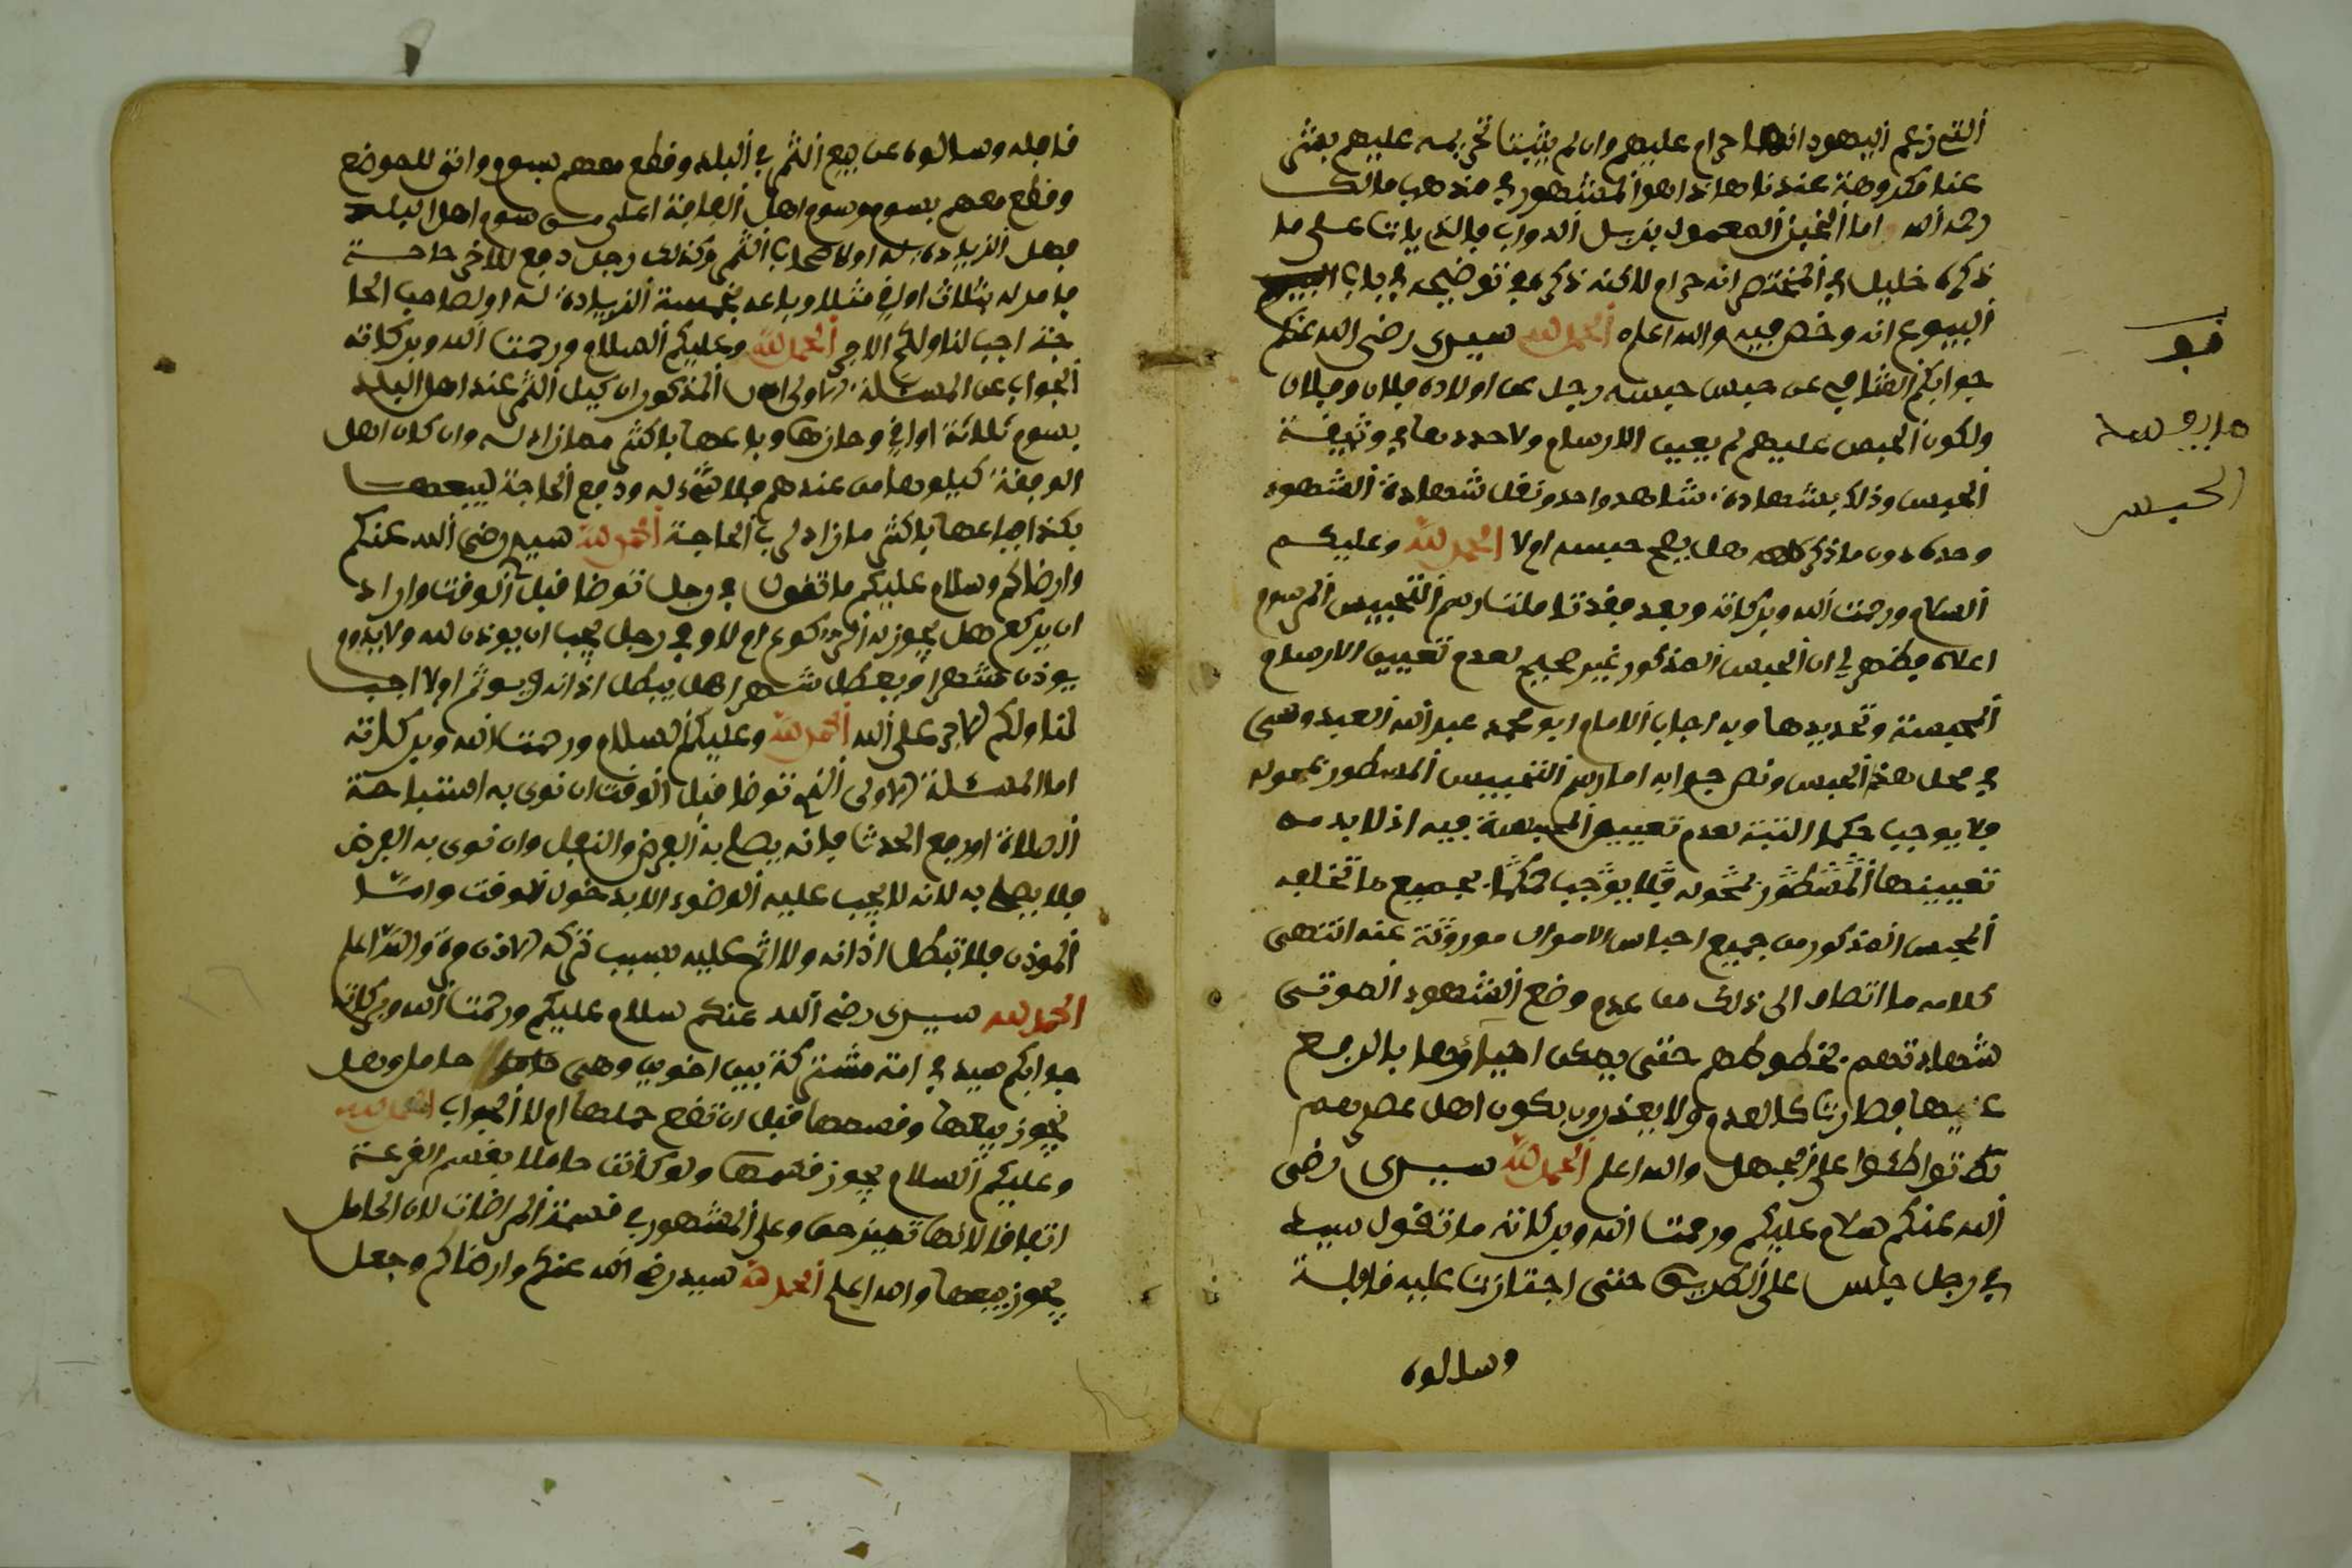 التي زعم اليهود انها حرام عليهم وان لم يثبت تحريمه عليهم بشرعنا
عندنا مكروهة عندنا هاذا هو المشهور في مذهب مالك
رحمه الله اما الخبز المعمول بزبل الدواب فالذي يات على ما
ذكره خليل في المختصر انه حرام لاكنه ذكر في توضيحه في باب
البيوع انه رخص فيه والله اعلم الحمد لله سيدى رضى الله عنكم
جوابكم الشافي عن حبس حبسه رجل عن اولاده فلان وفلان
ولكون الحبس عليهم لم يعين الارسام ولا حددها في وثيقة
الحبس وذلك بشهادة شاهد واحد ونقل شهادة الشهود
وحده دون ما ذكر كله هل يصح حبسه او لا الحمد لله وعليكم
السلام ورحمت الله وبركاته وبعد فقد تاملت رسم التحبيس المرسوم
اعلاه فظهر لي ان الحبس المذكور غير صحيح لعدم تعيين الارسام
المحبسة وتحديدها وبه اجاب الامام ابو محمد عبد الله العبدوسى
في محل هذا الحبس ونص جوابه اما رسم التحبيس المسطور بمحوله
فلا يوجب حكما البتة لعدم تعيين المحبسة فيه اذ لا بد من
تعيينها المسطور بمحوله فلا يوجب حكما بجميع ما تخلف
المحبس المذكور من جميع احباس الاموال موروثة عنه انتهى
كلامه ما انضاف الى ذلك من عدم وضع الشهود الموتى
شهادتهم بخطوطهم حتى يمكن احياؤها بالرفع
عليها فصارت كالعدم ولا يعذرون بكون اهل عصرهم
تواطئوا على الجهل والله اعلم الحمد لله سيدى رضى
الله عنكم سلام عليكم ورحمت الله وبركاته ما تقول سيد
في رجل جلس على الطريق حتى اجتازت عليه قافلة
وسالوه
قف
الحبس
قافلة وسالوه عن بيع الثمر في البلد وقطع معهم بسوم واتى للموضع
وقطع معهم بسوم وسوم اهل القافة اعلى من سوم اهل البلد
فهل الزيادة له او لاصحاب الثمر وكذلك رجل دفع للاخر حاجة
فامر له بثلاث اواق مثلا وباعه بخمسة الزيادة له او لصاحب الحا
جة اجب لنا ولكم الاجر الحمد لله وعليكم السلام ورحمت الله وبركاته
الجواب عن المسئلة الاولى المذكور ان كيل الثمر عند اهل البلد
بسوم ثلاثة اواق وحازها وباعها باكثر مما زاد له وان كان اهل
الوقفة كيلوها من عندهم فلا شيء له ودفع الحاجة ليبيعها
بكذا فباعها باكثر ما زاد لرب الحاجة الحمد لله سيد رضى الله عنكم
وارضاكم وسلام عليكم ما تقول في رجل توضا قبل الوقت واراد
ان يركع هل يجوز له الركوع ام لا وفي رجل يحب ان يوذن لله ولا يدوم
يوذن شهرا ويعطل شهرا هل يبطل اذانه ويوثم او لا اجب
لنا ولكم الاجر على الله الحمد لله وعليكم السلام ورحمت الله وبركاته
اما المسئلة الاولى الذي توضا قبل الوقت ان نوى به استباحة
الصلاة او رفع الحدث فانه يصلي به الفرض والنفل وان نوى به الفرض
فلا يصلي به لانه لا يجب عليه الوضوء الا بدخول الوقت واما
الموذن فلا تبطل اذانه ولا اثم عليه بسبب تركه الاذن مرة والله اعلم
الحمد لله سيدى رضى الله عنكم سلام عليكم ورحمت الله وبركاته
جوابكم سيد في امة مشتركة بين اخوين وهى حامل وهل
يجوز بيعها وقسمها قبل ان تضع حملها ام لا الجواب الحمد لله
وعليكم السلام يجوز قسمها ولو كانت حاملا بقسم القرعة
اتفاقا لانها تمييز حق وعلى المشهور في قسمة المراضات لان الحامل
يجوز بيعها والله اعلم الحمد لله سيد رضى الله عنكم وارضاكم وجعل